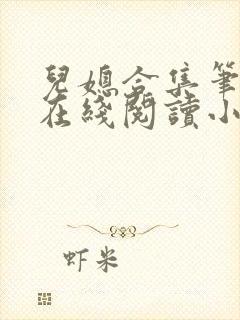 兒媳合集筆
在綫閱讀小
虾米